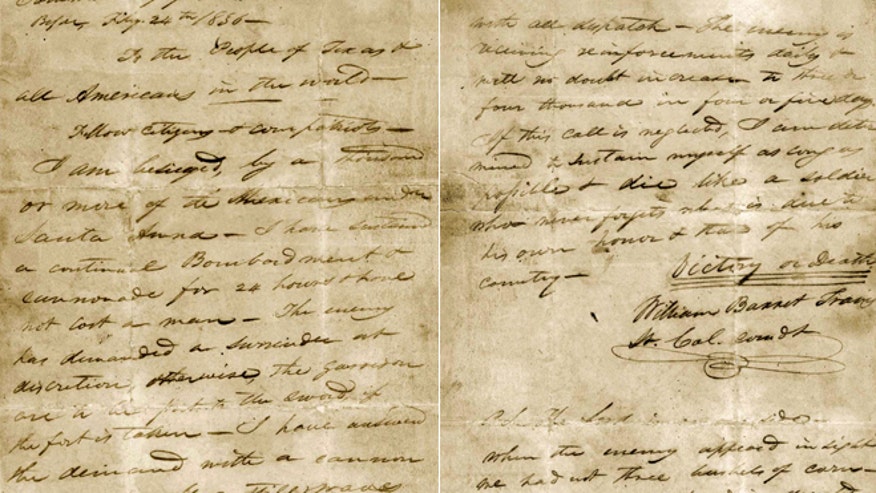 Bejar, Feby. 24th 1836—
To the People of Texas &
all Americans in the world—
Fellow citizens & compatriots—
I am besieged, by a thousand
or more of the Mexicans under
Santa Anna— I have sustained
a continual Bombardment &
cannonade for 24 hours & have
not lost a man— The enemy
has demanded a surrender at
discretion, otherwise, the garrison
are to be put to the sword, if
the fort is taken— I have answered
the demand with a cannon
with all dispatch— The enemy is
receiving reinforcements daily &
will no doubt increase to three or
four thousand in four or five days.
If this call is neglected, I am deter
mined to sustain myself as long as
possible & die like a soldier
who never forgets what is due to
his own honor & that of his
country—
Victory or Death
William Barret Travis
Lt. Col. comdt
P.S. The Lord is on our side—
when the enemy appeared in sight
we had not three bushels of corn—